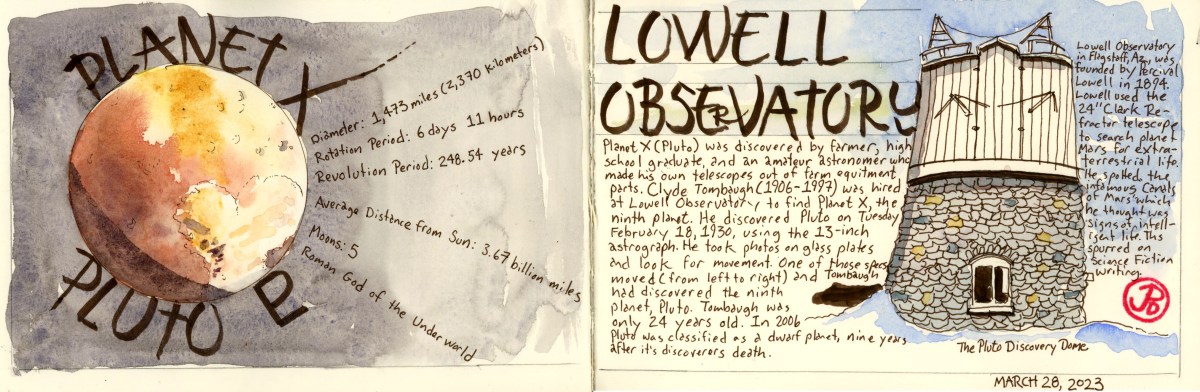 PLANET X
PLUTO
Diameter: 1,473 miles (2,370 kilometers)
Rotation Period: 6 days 11 hours
Revolution Period: 248.54 years
Average Distance from Sun: 3.67 billion miles
Moons: 5
Roman God of the Underworld
LOWELL
OBSERVATORY
Planet X (Pluto) was discovered by farmer, high
school graduate, and an amateur astronomer who
made his own telescopes out of farm equitment
parts. Clyde Tombaugh (1906-1997) was hired
at Lowell Observatory to find Planet X, the
ninth planet. He discovered Pluto on Tuesday
February 18, 1930, using the 13-inch
astrograph. He took photos on glass plates
and look for movement. One of those specs
moved (from left to right) and Tombaugh
had discovered the ninth
planet, Pluto. Tombaugh was
only 24 years old. In 2006
Pluto was classified as a dwarf planet, nine years
after it's discoverors death.
Lowell Observatory
in Flagstaff, Az., was
founded by Percival
Lowell in 1894.
Lowell used the
24" Clark Re-
fractor telescope
to search planet
Mars for extra-
terrestrial life.
He spotted the
infamous Canals
of Mars which
he thought was
signs of intell-
igent life. This
spurred on
Science Fiction
writing.
The Pluto Discovery Dome
MARCH 28, 2023